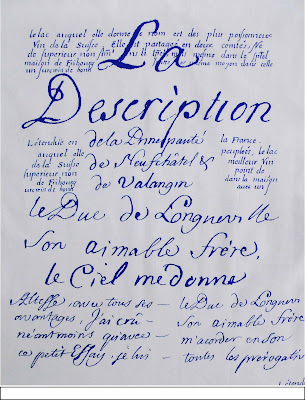 le lac auquel elle donne le nom est des plus poissonneux
Vin de la Suisse Elle est partagée en deux comtés, Ne
de superieure non loin
maison de Fribourg
La
Description
L'étendüe en
auquel elle
de la Suisse
superieure non
de Fribourg
un surcins de bond
de la Principauté
de Neufchâtel &
de Valangin
la France.
peuplées, le lac
meilleur Vin
point de
dans la maison
avec un
le Duc de Longuevlle
Son aimable frère,
le Ciel me donne
Altesse, avec tous ses —
avantages, J'ai crû —
néantmoins qu'avec —
ce petit Essay, je lui —
le Duc de Longuev
Son aimable frère
m'acorder en son
toutes les prérogativ
L'étend